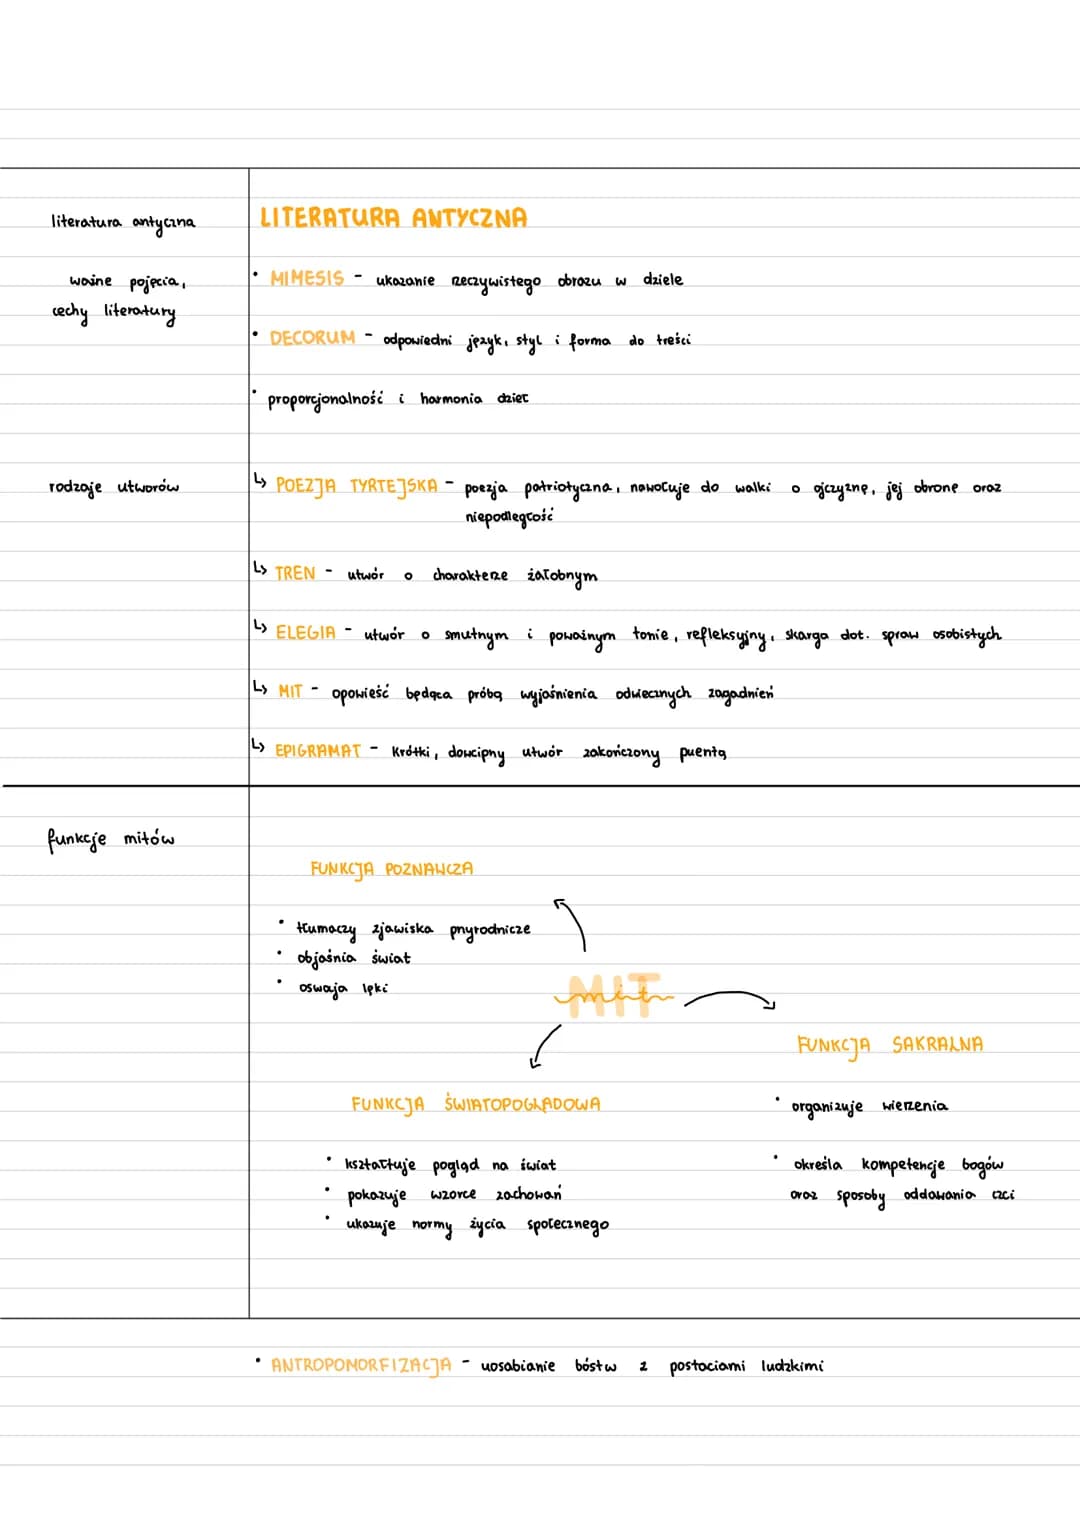 literatura antyczna
LITERATURA ANTYCZNA
ważne pojęcia,
cechy literatury
• MIMESIS - ukazanie rzeczywistego obrazu w dziele
• DECORUM - odpowiedni język, styl i forma do treści
• proporcjonalność i harmonia dzieł
rodzaje utworów
↳ POEZJA TYRTEJSKA - poezja patriotyczna, nawołuje do walki o ojczyznę, jej obronę oraz
niepodległość
↳ TREN - utwór o charakterze żałobnym
↳ ELEGIA - utwór o smutnym i poważnym tonie, refleksyjny, skarga dot. spraw osobistych
↳ MIT - opowieść będąca próbą wyjaśnienia odwiecznych zagadnień
↳ EPIGRAMAT - krótki, dowcipny utwór zakończony puentą
funkcje mitów
FUNKCJA POZNAWCZA
• tłumaczy zjawiska przyrodnicze
• objaśnia świat
• oswaja lęki
MIT
mit
FUNKCJA SAKRALNA
• organizuje wierzenia
• określa kompetencje bogów
oraz sposoby oddawania czci
FUNKCJA ŚWIATOPOGLĄDOWA
• kształtuje pogląd na świat
• pokazuje wzorce zachowań
• ukazuje normy życia społecznego
• ANTROPOMORFIZACJA - uosabianie bóstw z postaciami ludzkimi